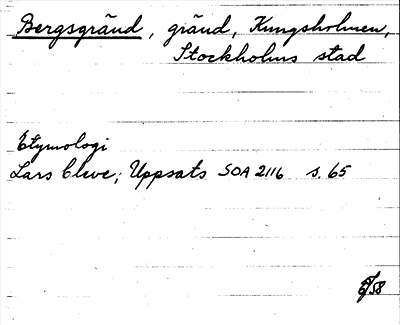 Bergsgränd, gränd, Kungsholmen,
Stockholms stad
Etymologi
Lars Cleve; Uppsats SOA 2116 s. 65